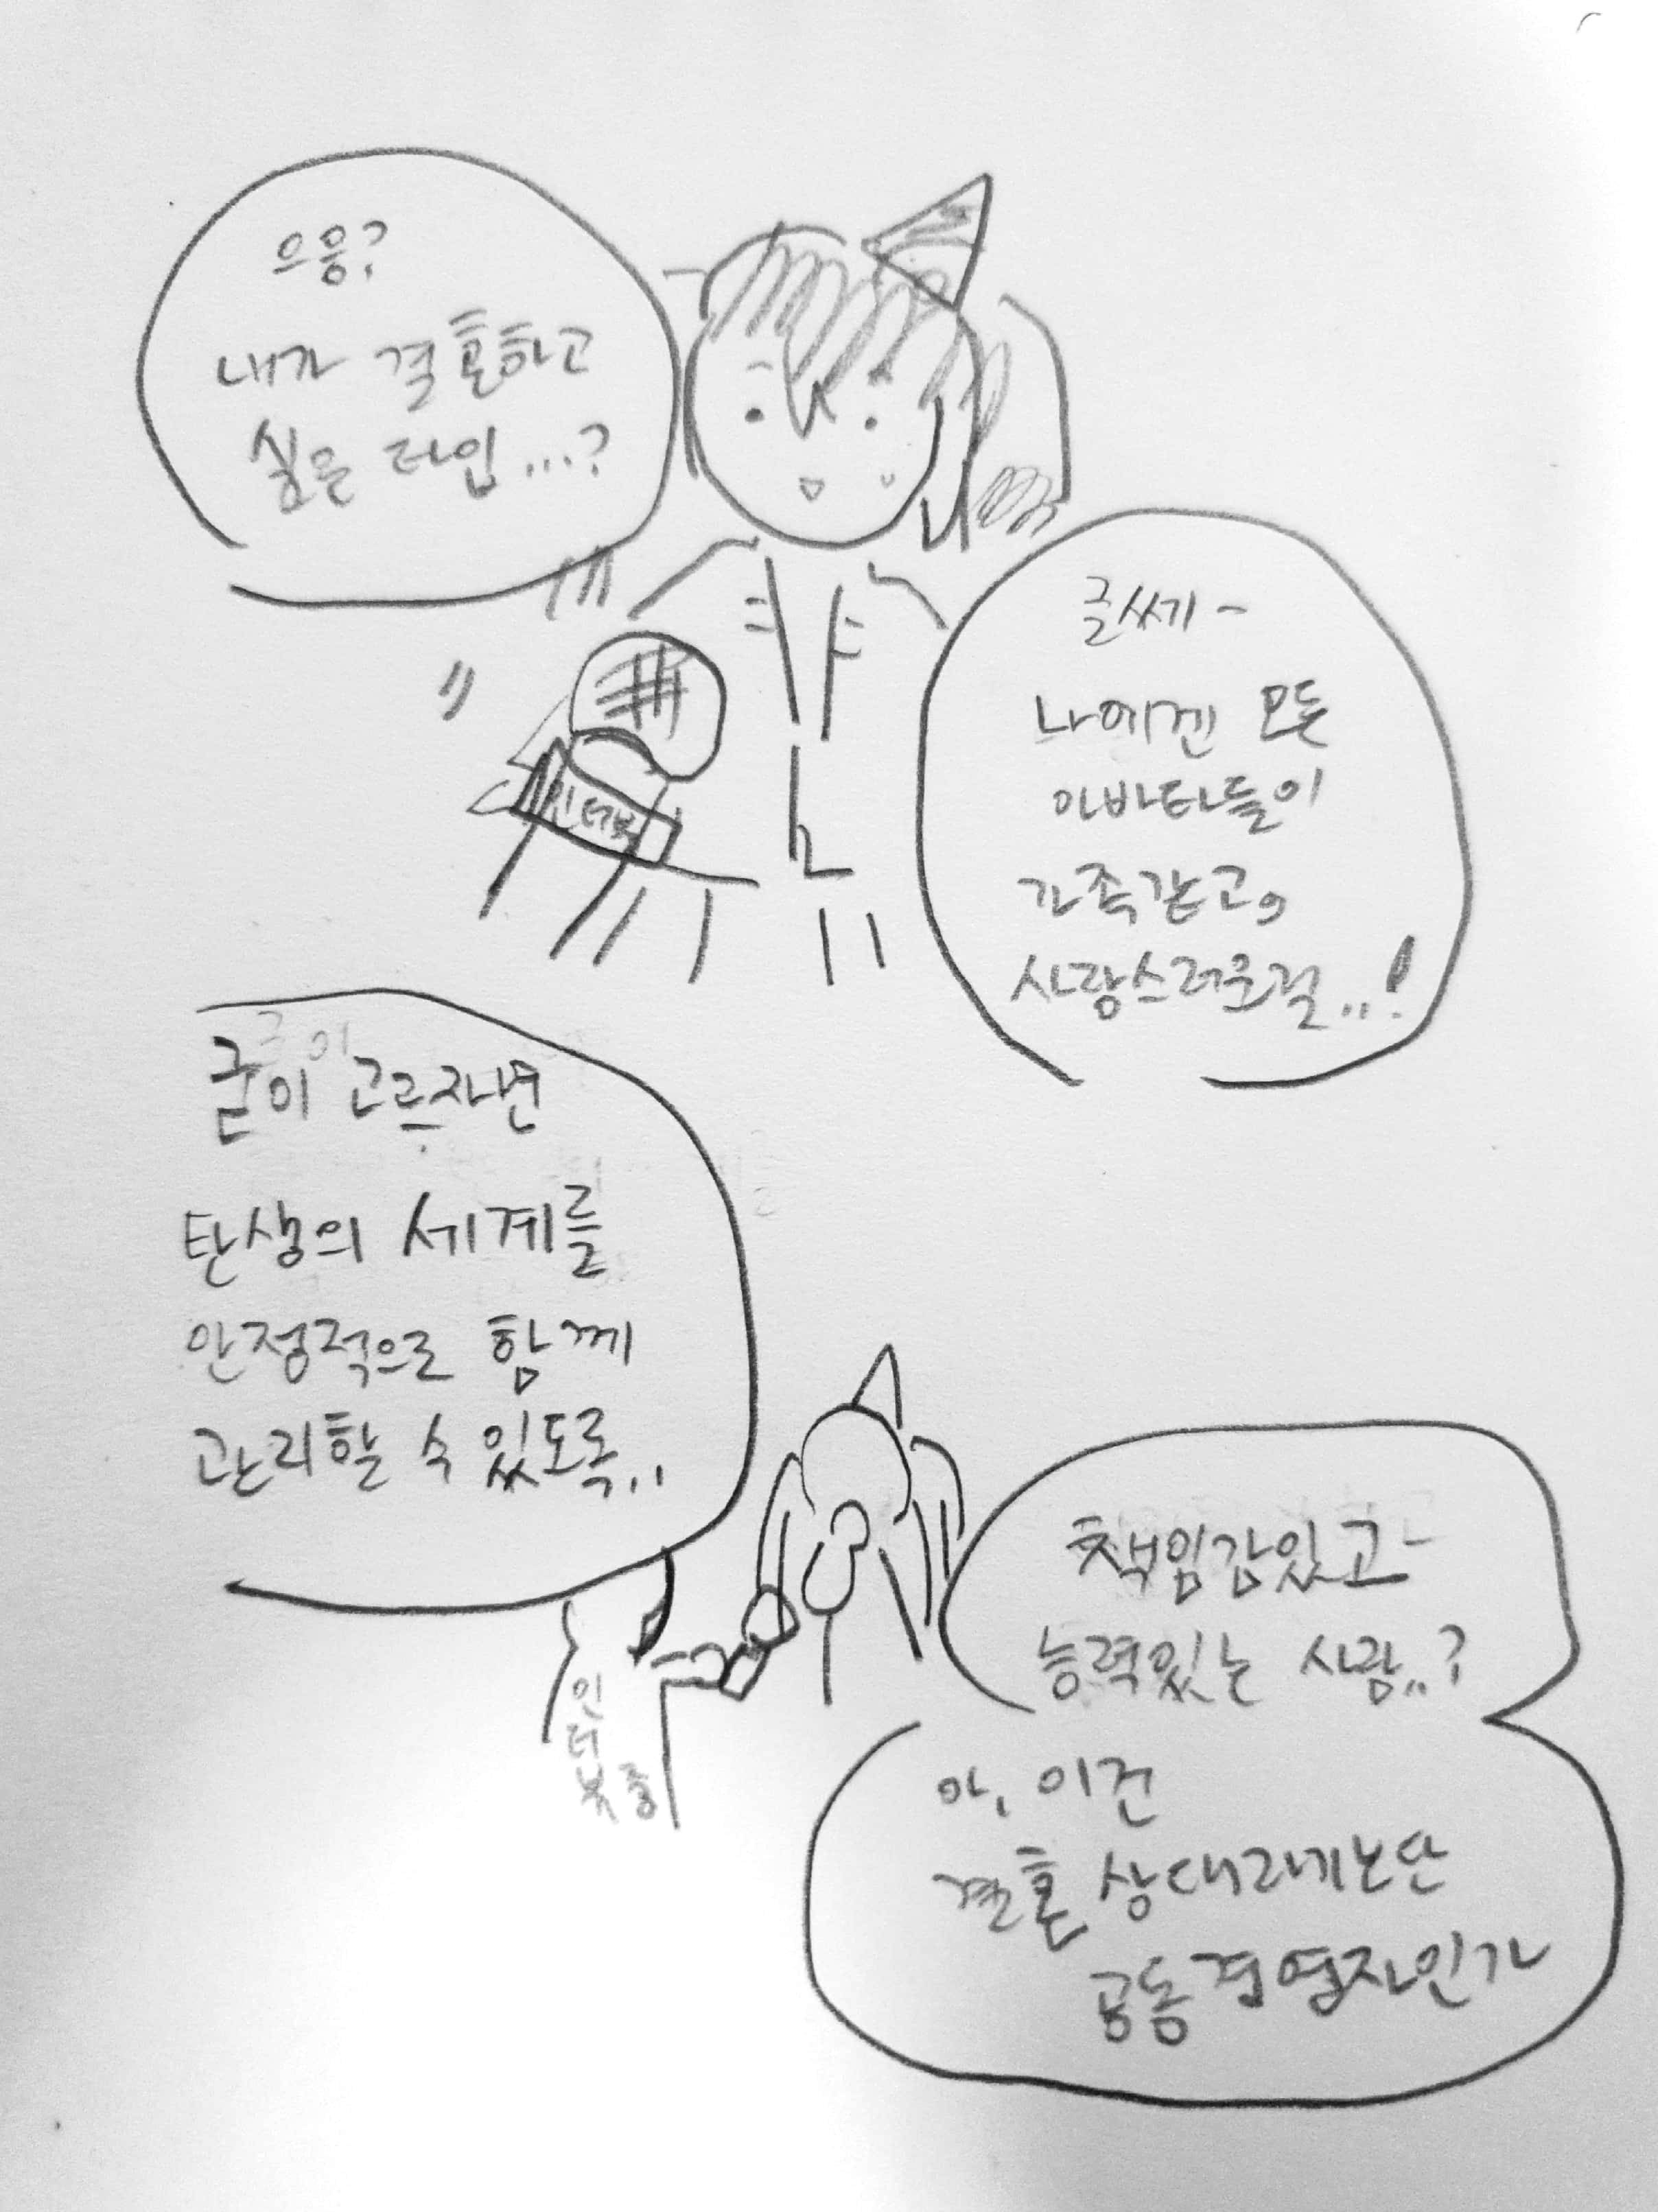 으응?
내가 결혼하고
싶은 타입...?
글쎄~
나에겐 모든
아바타들이
가족같고,
사랑스러운걸..!
인터뷰
굳이 고르자면
탄생의 세계를
안정적으로 함께
관리할 수 있도록..
책임감있고-
능력있는 사람..?
인터뷰중
아, 이건
결혼 상대라기보단
공동경영자인가